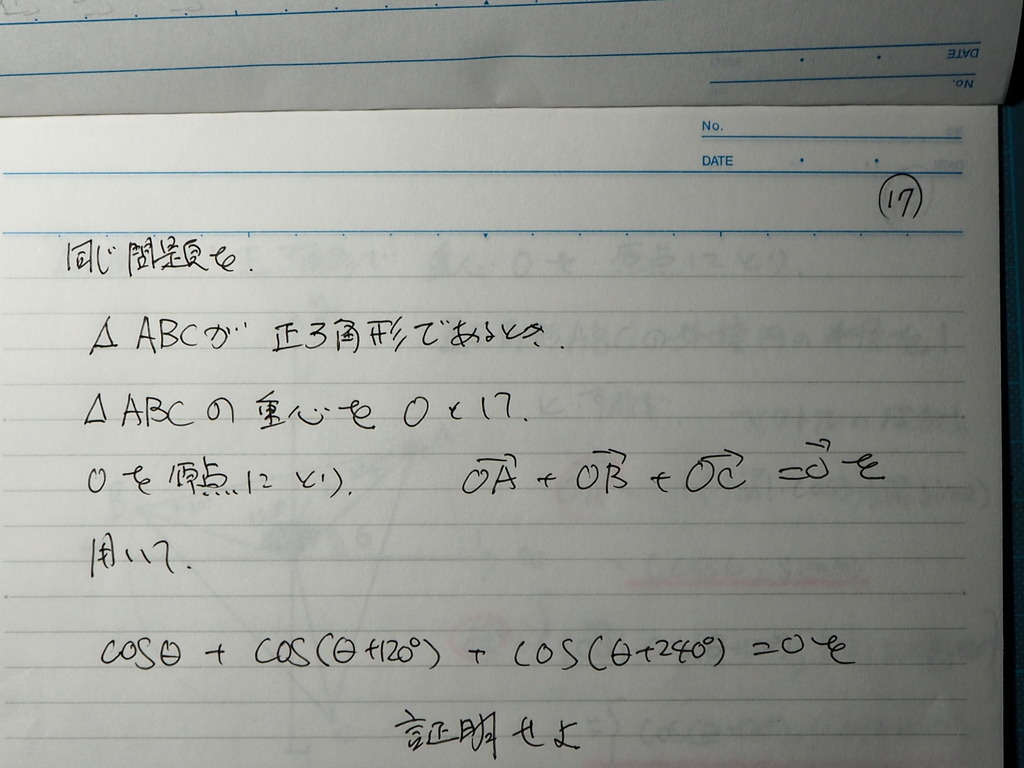 DATE
No.
No.
DATE
17
同じ問題を、
△ABCが正三角形であるとき、
△ABCの重心をOとして、
Oを原点にとり、 OA→ + OB→ + OC→ = 0→ を
用いて、
cosθ + cos(θ+120°) + cos(θ+240°) = 0 を
証明せよ